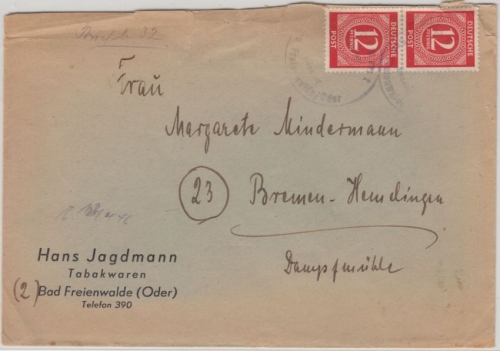 12
DEUTSCHE POST
12
DEUTSCHE POST
Frau
Margarete Mindermann
23 Bremen-Hemelingen
Dampfmühle
Hans Jagdmann
Tabakwaren
(2) Bad Freienwalde (Oder)
Telefon 390